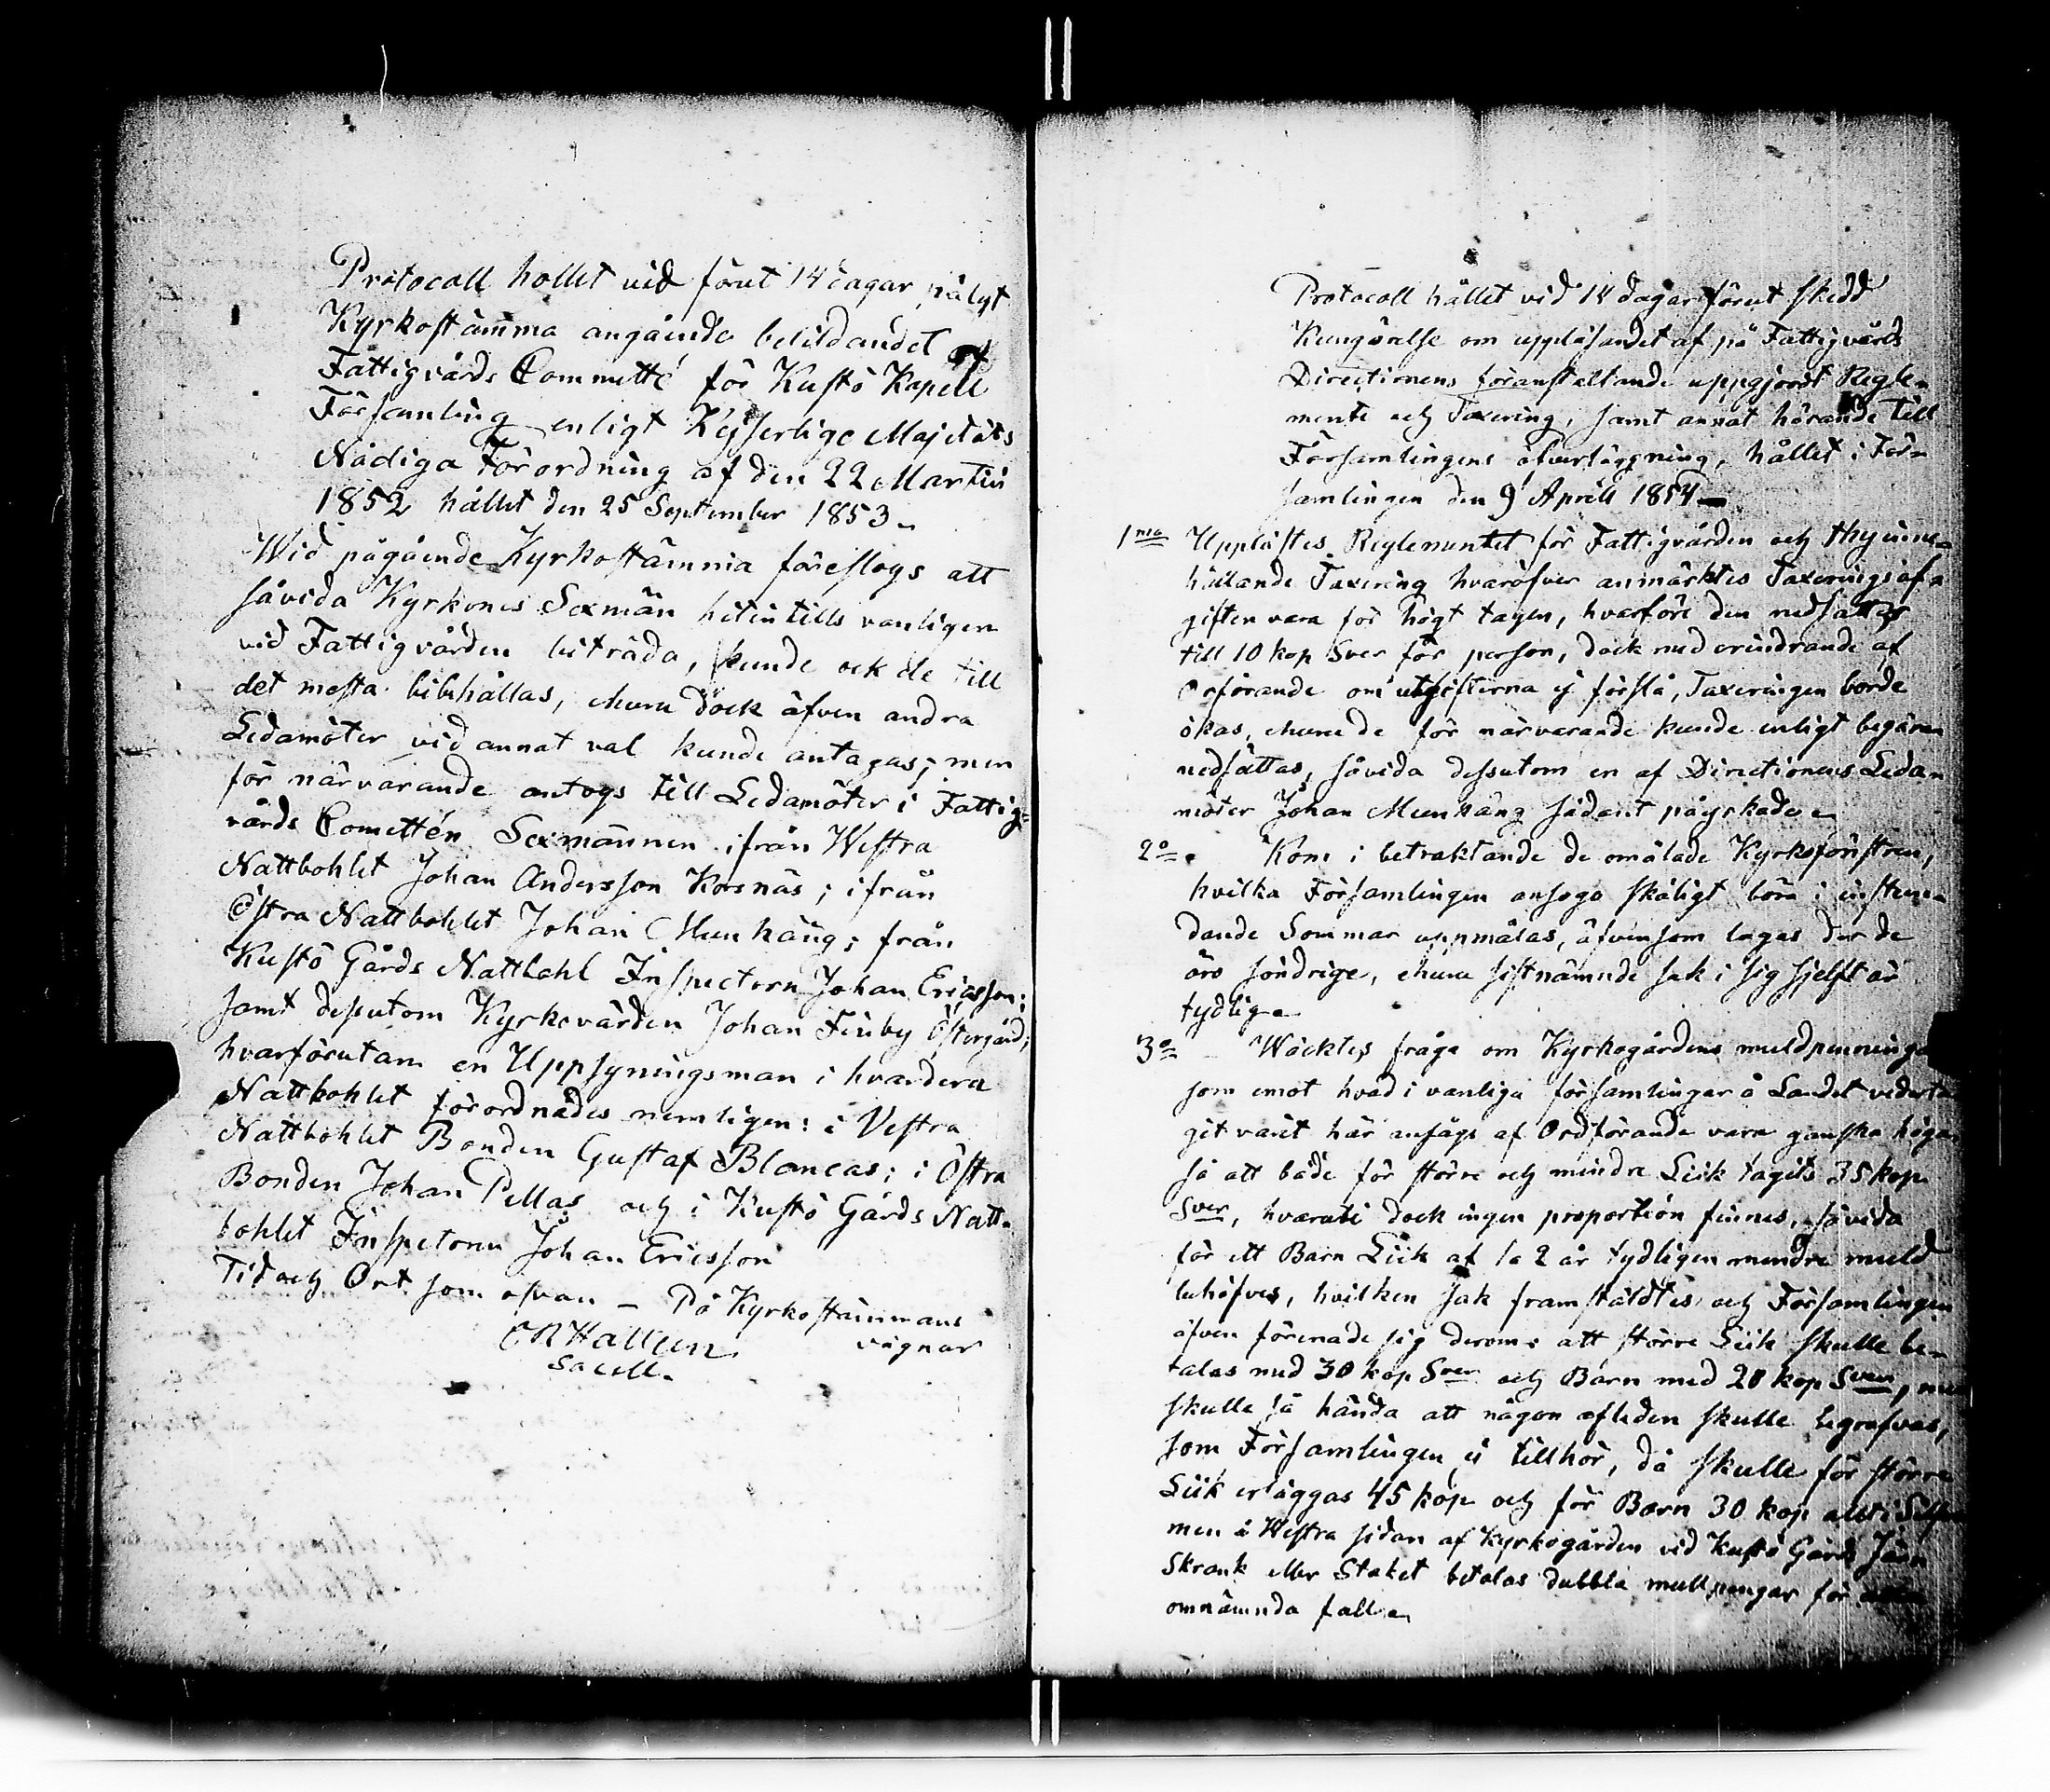 Protocoll hollet vid förut 14 dagar pålyst
Kyrkostämma angående belildandet af
Fattigvårds Committé för Kustö Kapell
Församling enligt Kejserlige Majestäts
Nådiga Förordning af den 22 Martii
1852 hållet den 25 September 1853.
Wid pågående Kyrkostämma föreslogs att
såvida Kyrkones Sexmän hitintills vanligen
vid Fattigvården biträda, kunde ock de till
det mesta bibehållas, ehuru dock äfven andra
Ledamöter vid annat val kunde antagas; men
för närvarande antogs till Ledamöter i Fattig=
vårds Comettén Sexmännen ifrån Westra
Nattbohlet Johan Andersson Korsnäs; ifrån
Östra Nattbohlet Johan Munhäng; från
Kustö Gårds Nattbohl Inspectorn Johan Ericsson;
samt dessutom Kyrkovärden Johan Finby Östergård;
hvarförutan en Uppsyningsman i hvardera
Nattbohlet förordnades nemligen: i Vestra
Nattbohlet Bonden Gustaf Blancas; i Östra
Bonden Johan Pellas och i Kustö Gårds Natt=
bohlet Inspetorn Johan Ericsson
Tid och Ort som ofvan – På Kyrkostämmans
vägnar
CR Halleen
Sacell.
Protocoll hållet vid 14 dagar förut skedd
Kungörelse om uppläsandet af på Fattigvårds
Directionens föranstaltande uppgjordt Regle=
mente och Taxering, samt annat hörande till
Församlingens öfverläggning, hållet i För=
samlingen den 9 Aprill 1854
1mo Upplästes Reglementet för Fattigvården och thy inne=
hållande Taxering hvaröfver anmärktes Taxeringsaf=
giften vara för högt tagen, hvarföre den nedsattes
till 10 kop Sver för person, dock med erindrande af
Orförande om utgifterna ej förslå, Taxeringen borde
ökas, ehuru de för närvarande kunde enligt begäran
nedsättas, såvida dessutom en af Directionens Leda=
möter Johan Munhäng sådant påyrkade.
2o Kom i betraktande de omålade Kyrkofönstren,
hvilka Församlingen ansågo skäligt böra i instun=
dande Sommar uppmålas, äfvensom lagas der de
äro söndrige, ehuru sistnämnde sak i sig sjelft är
tydlig.
3o Wäcktes fråga om Kyrkogårdens muldpenninga
som emot hvad i vanliga församlingar å Landet vederta
git varit här ansågs af Ordförande vara ganska höga
så att både för större och mindre Liik tagits 35 kop
Sver, hvaruti dock ingen proportion finnes, såvida
för ett Barn Liik af 1 a 2 år tydligen mindre muld
behöfves, hvilken sak framstäldtes och Församlingen
äfven förenade sig derom: att större Liik skulle be=
talas med 30 kop Sver och Barn med 20 kop Sver, men
skulle så hända att någon afleden skulle begrafvas,
som Församlingen ej tillhör, då skulle för större
Liik erläggas 45 kop och för Barn 30 kop allt i Silfver
men å Westra sidan af Kyrkogården vid Kustö Gårds Järn
Skrank eller Staket betalas dubbla mullpengar för
omnämnda fall.